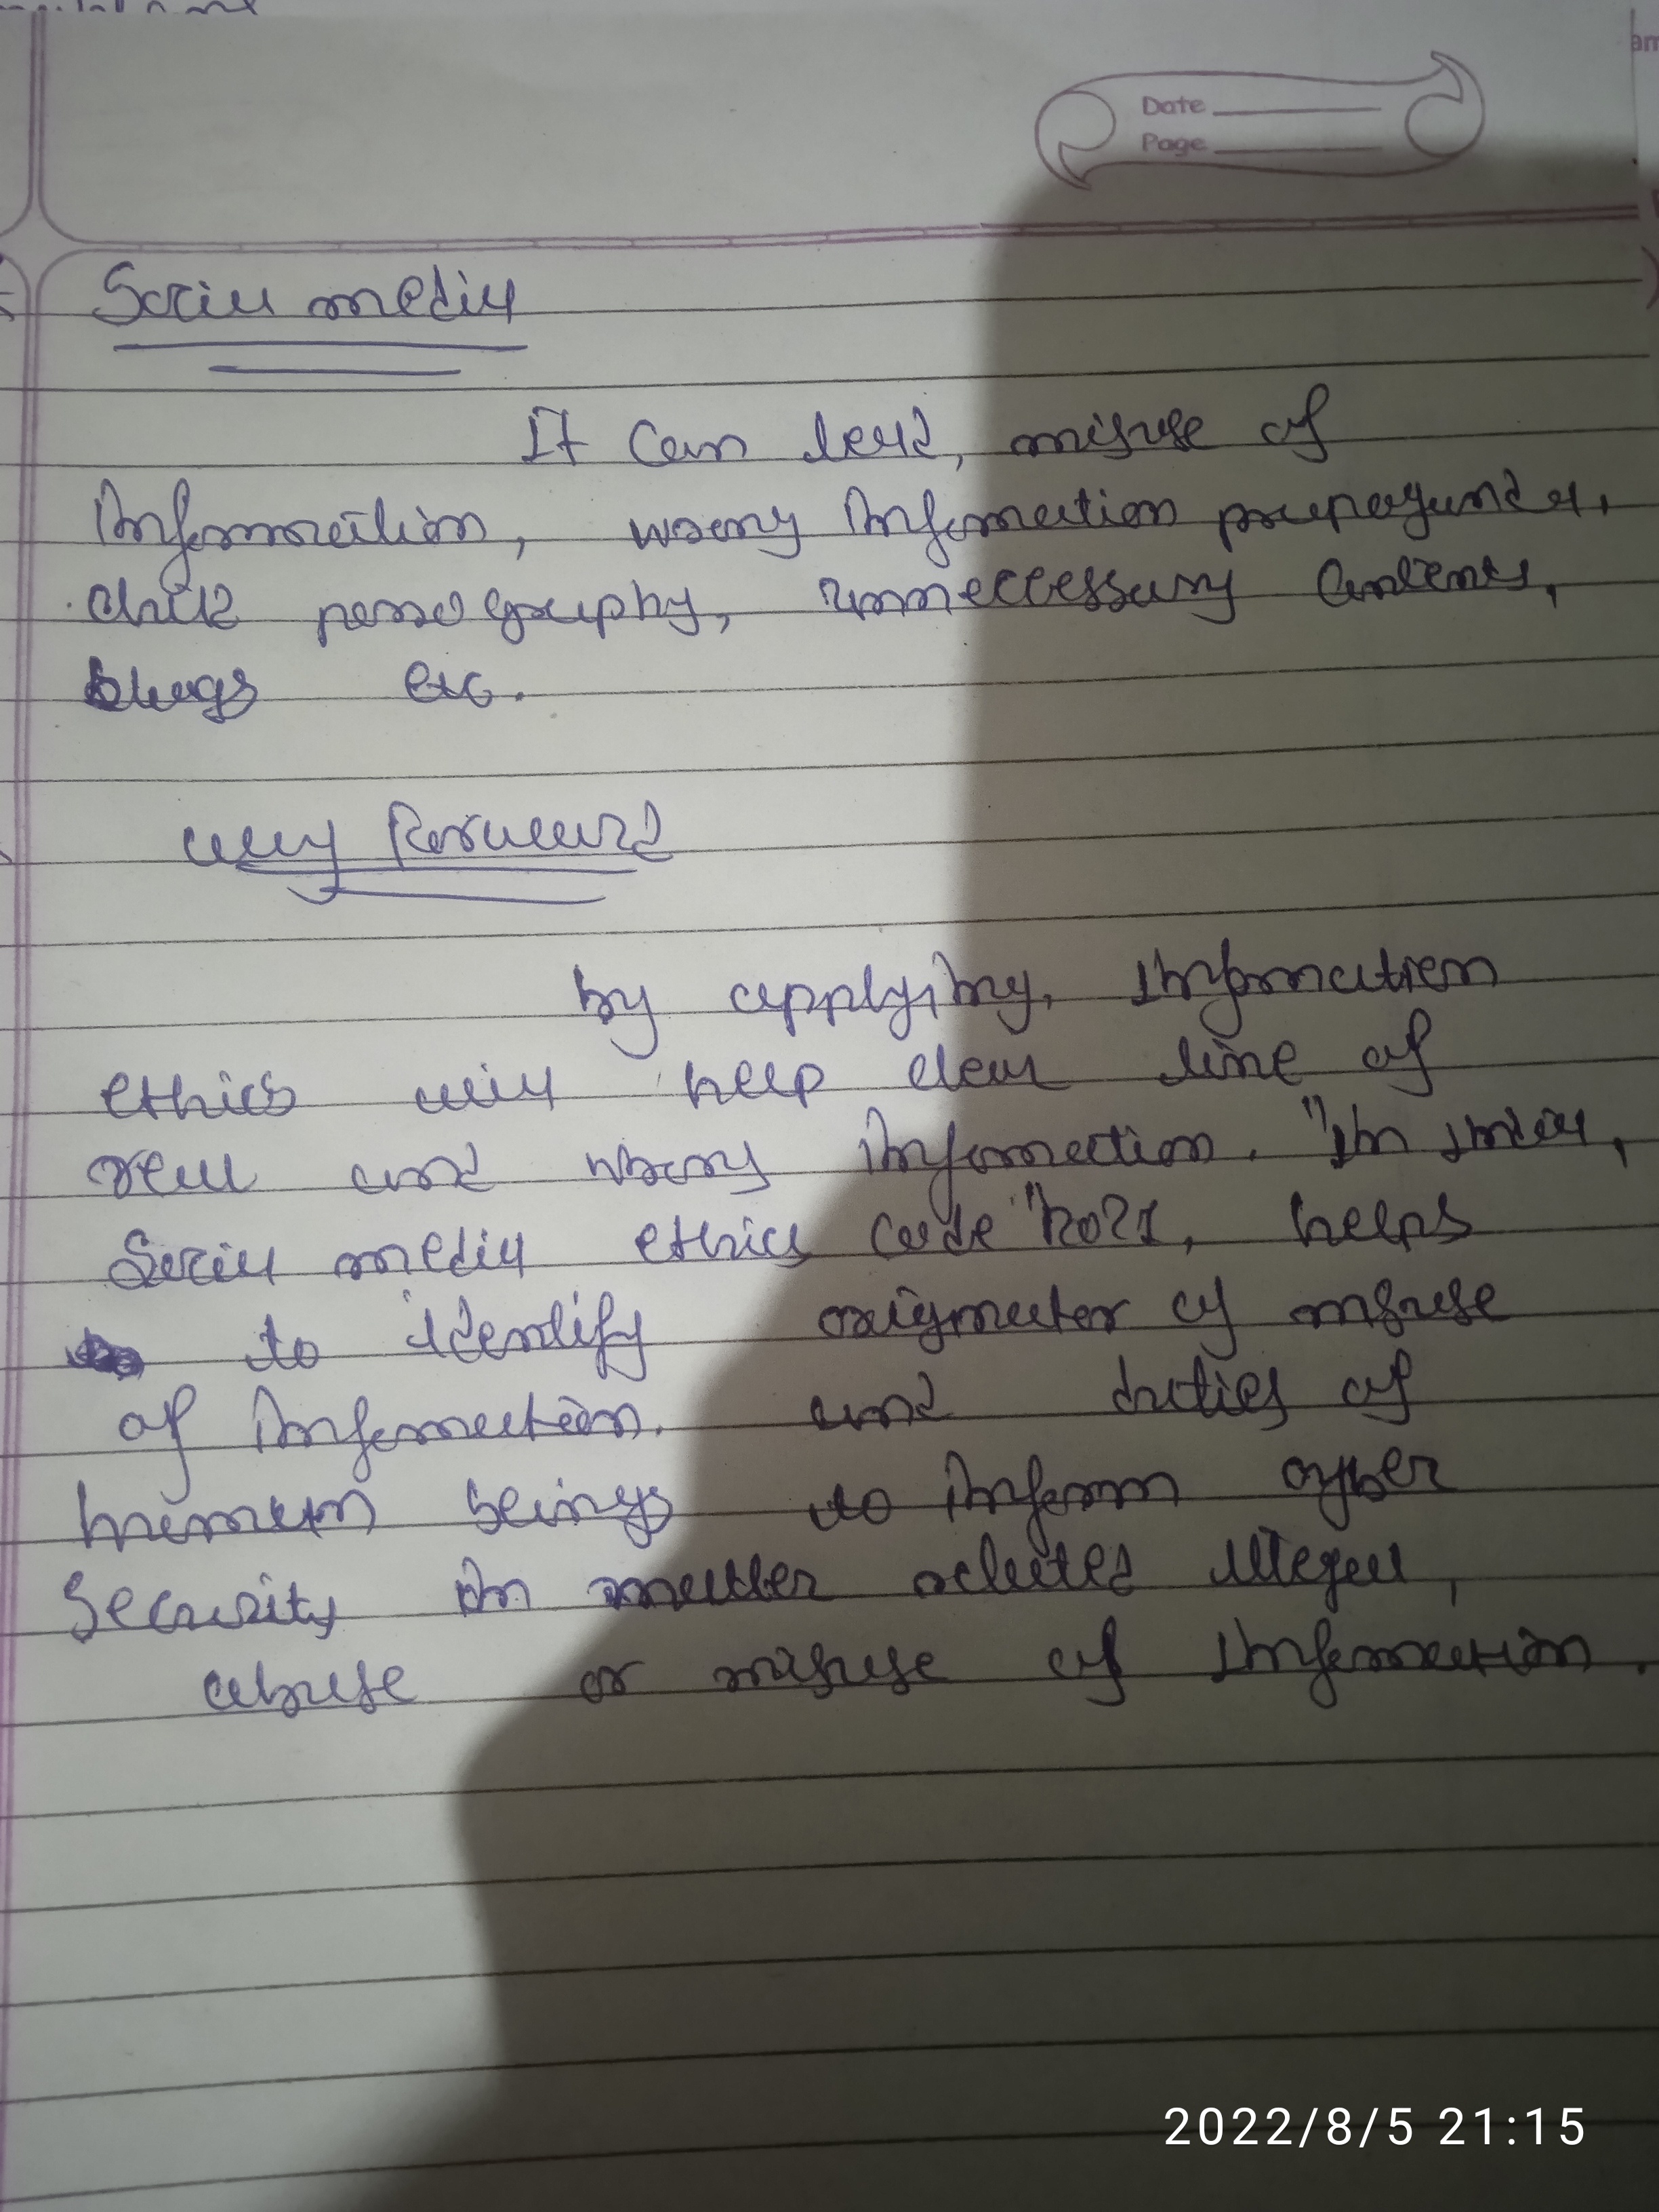 Date
Page
Social media
It Can lead, misuse of
Information, wrong Information propaganda,
child pornography, unneccessary Contents,
etc.
way Forward
by applying, Information
ethics will help clear line of
real and wrong Information. "In India,
Social media ethics code" 2021, helps
to identify originator of misuse
of Information. and duties of
human beings to inform cyber
Security in matter related illegal,
abuse or misuse of Information.
2022/8/5 21:15